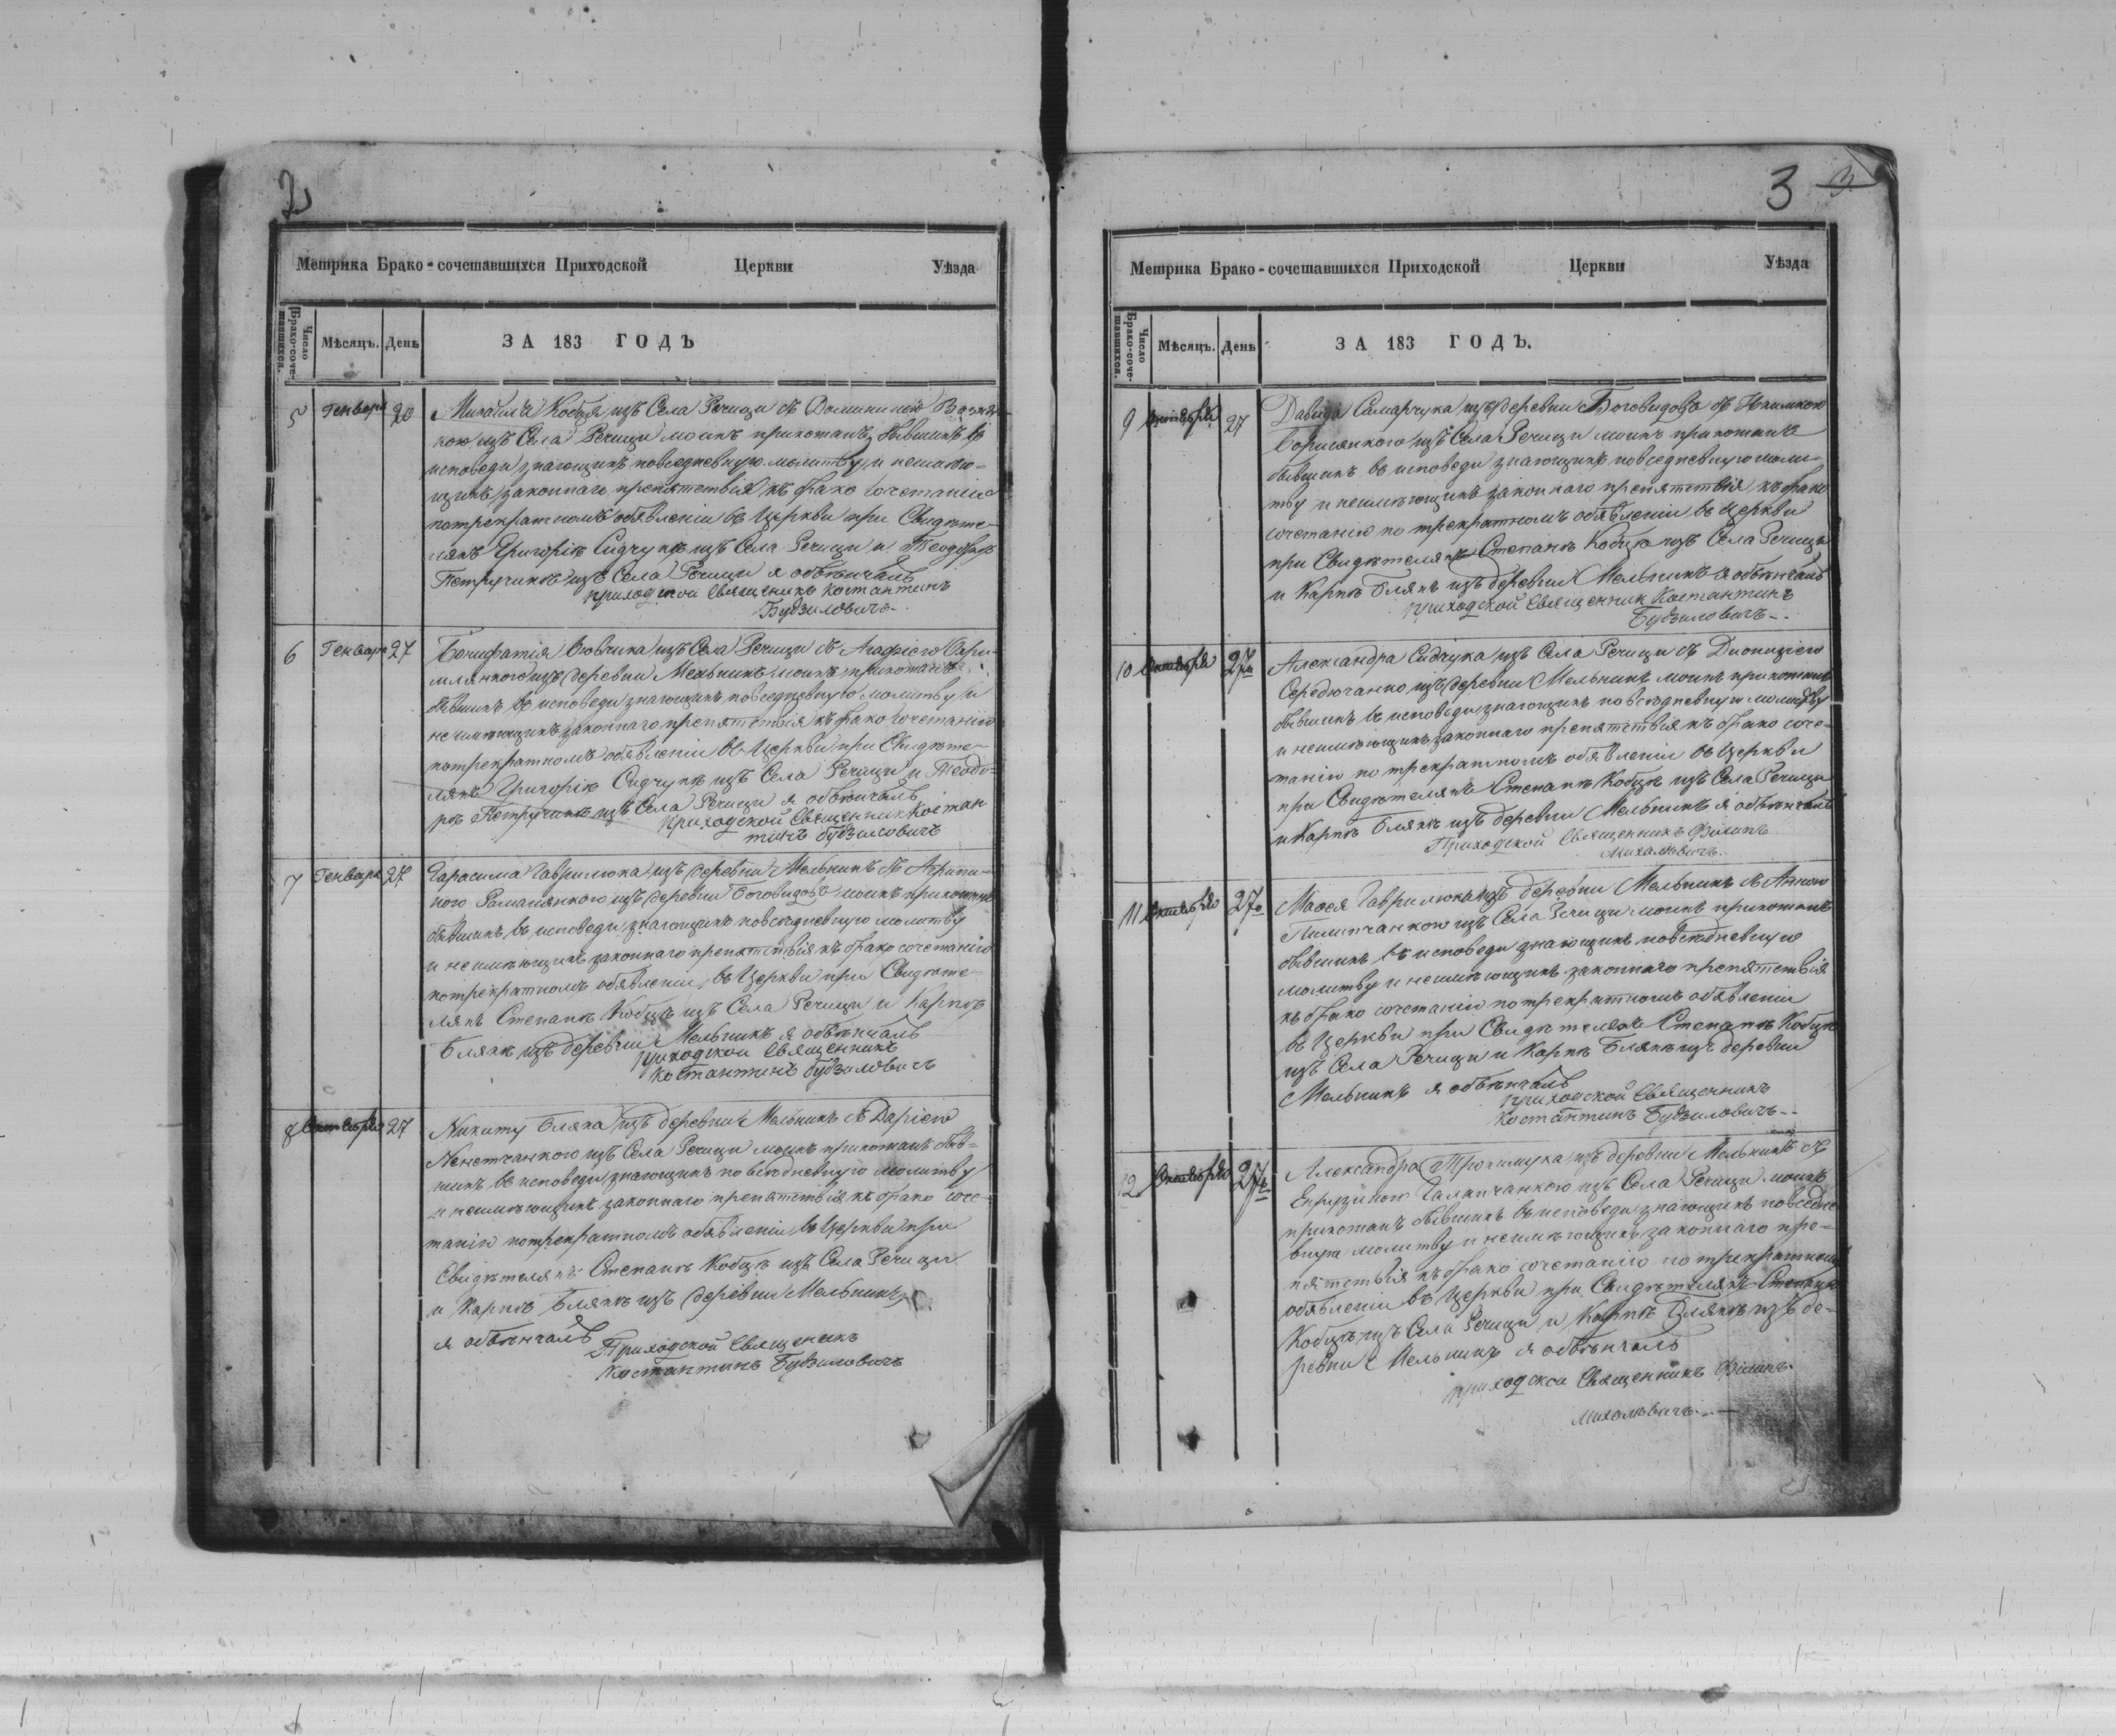 2
Метрика Брако-сочетавшихся Приходской Церкви Уѣзда
Число Брако-сочетавшихся. Мѣсяцъ. День ЗА 183 ГОДЪ
5 Генваря 20 Михаила Кобца изъ Села Речици съ Доминикією
кою изъ Села Речици моихъ прихожанъ, бывшихъ въ
исповеди знающихъ повседневную молитву, и неимѣю-
щихъ законнаго препятствія къ брако сочетанію
потрекратномъ обявленіи въ Церкви при Свидѣте-
ляхъ Григоріѣ Сидчукѣ изъ Села Речици и Теодорѣ
Петручикѣ изъ Села Речици я обвѣнчалъ
приходской Священикъ Костантинъ
Будзиловичъ
6 Генваря 27 Бонифатія Вовчика изъ Села Речици съ Агафією
изъ деревни Мельникъ моихъ прихожанъ
бывшихъ въ исповеди знающихъ повседневную молитву и
неимѣющихъ законнаго препятствія къ брако сочетанію
потрекратномъ обявленіи въ Церкви при Свидѣте-
ляхъ Григоріѣ Сидчукѣ изъ Села Речици и Теодо-
рѣ Петручикѣ изъ Села Речици я обвѣнчалъ
приходской Священник Костан
тинъ Будзиловичъ
7 Генваря 27 Гарасима Гаврилюка изъ деревни Мельникъ съ Агрипи-
ною Романянкою изъ деревни Боговидовъ моихъ прихожанъ
бывшихъ въ исповеди знающихъ повседневную молитву
и неимѣющихъ законнаго препятствія къ брако сочетанію
потрекратномъ обявленіи въ Церкви при Свидѣте-
ляхъ Степанѣ Кобцѣ изъ Села Речици и Карпѣ
Блякѣ изъ деревни Мельникъ я обвѣнчалъ
приходской Священникъ
Костантинъ Будзиловичъ
8 27 Никиту Бляка изъ деревни Мельникъ съ Дарією
изъ Села Речици моихъ прихожанъ быв-
шихъ въ исповеди знающихъ повседневную молитву
и неимѣющихъ законнаго препятствія къ брако соче-
танію потрекратномъ обявленіи въ Церкви при
Свидѣтеляхъ Степанѣ Кобцѣ изъ Села Речици
и Карпѣ Блякѣ изъ деревни Мельникъ
я обвѣнчалъ Приходской Священикъ
Костантинъ Будзиловичъ
3
Метрика Брако-сочетавшихся Приходской Церкви Уѣзда
Число Брако-сочетавшихся. Мѣсяцъ. День ЗА 183 ГОДЪ.
9 27 Давида Самарчука изъ деревни Боговидовъ съ
изъ Села Речици моихъ прихожанъ
бывшихъ въ исповеди знающихъ повседневную моли-
тву и неимѣющихъ законнаго препятствія къ брако
сочетанію по трекратномъ обявленіи въ Церкви
при Свидѣтеляхъ Степанѣ Кобцѣ изъ Села Речици
и Карпѣ Блякѣ изъ деревни Мельникъ я обвѣнчалъ
приходской Священник Костантинъ
Будзиловичъ
10 27 Александра Сидчука изъ Села Речици съ Дионизією
изъ деревни Мельникъ моихъ прихожанъ
бывшихъ въ исповеди знающихъ повседневную молитву
и неимѣющихъ законнаго препятствія къ брако соче-
танію по трекратномъ обявленіи въ Церкви
при Свидѣтеляхъ Степанѣ Кобцѣ изъ Села Речици
и Карпѣ Блякѣ изъ деревни Мельникъ я обвѣнчалъ
Приходской Священникъ Филипъ
Михалевичъ
11 27 Маѳея Гаврилюка изъ деревни Мельникъ съ Анною
Пилипчанкою изъ Села Речици моихъ прихожанъ
бывшихъ въ исповеди знающихъ повседневную
молитву и неимѣющихъ законнаго препятствія
къ брако сочетанію по трекратномъ обявленіи
въ Церкви при Свидѣтеляхъ Степанѣ Кобцѣ
изъ Села Речици и Карпѣ Блякѣ изъ деревни
Мельникъ я обвѣнчалъ
приходской Священникъ
Костантинъ Будзиловичъ
12 27 Александра Трохимука изъ деревни Мельникъ съ
изъ Села Речици моихъ
прихожанъ бывшихъ въ исповеди знающихъ повседне
вную молитву и неимѣющихъ законнаго пре-
пятствія къ брако сочетанію по трекратномъ
обявленіи въ Церкви при Свидѣтеляхъ Степанѣ
Кобцѣ изъ Села Речици и Карпѣ Блякѣ изъ де-
ревни Мельникъ я обвѣнчалъ
приходской Священникъ Филипъ
Михалевичъ